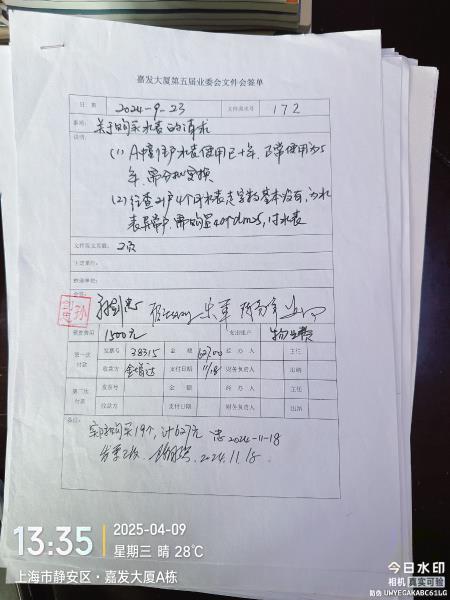 嘉发大厦第五届业委会文件会签单
日 期 2024-9-23 文件流水号 172
事项: 关于购买水表的请求
说明:
(1) A幢住户水表使用已十年,正常使用为5
年,需分批更换
(2) 经查21户4个月水表走字数基本没有,为水
表异常户,需购置40个dm25,
文件原文页数: 2页
主送单位:
抄送单位:
预算费用 1500元 支出账户 物业费
第一次付款 发票号 38315 金 额 627.00 经 办 人 主任
收款方 支付日期 11/18 财务负责人 出纳
第二次付款 发票号 金 额 经 办 人 主任
收款方 支付日期 财务负责人 出纳
备注:
实际购买19个,计627元 忠 2024-11-18
发票2枚 2024.11.18.
13:35 2025-04-09
星期三 晴 28℃
上海市静安区·嘉发大厦A栋
今日水印
相机 真实可验
防伪 UMYEGAKABC61LG